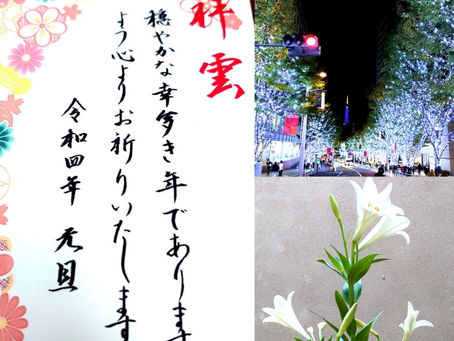 祥雲
穏やかな幸多き年であります
よう心よりお祈りいたします
令和四年 元旦